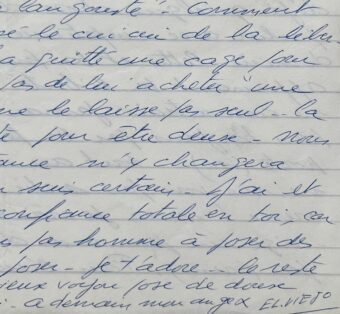 langouste. Comment
le cui cui de la liber
a quitté une cage pour
pas de lui acheter "une
me le laisse pas seul.. la
pour être deux - nous
n'y changera
suis certain. J'ai et
confiance totale en toi, car
pas homme à poser des
poser - je t'adore... le reste
pose de doux
à demain mon ange x EL VIEJO